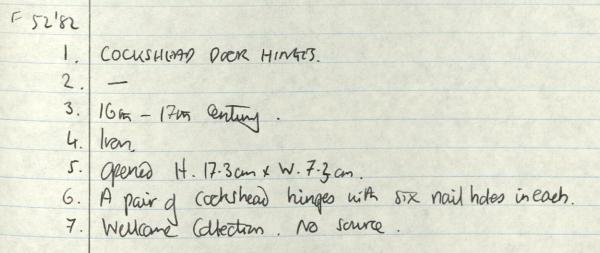 F 52'82
1. COCKSHEAD DOOR HINGES.
2. —
3. 16th – 17th Century.
4. Iron.
5. opened H. 17.3cm x W. 7.3cm.
6. A pair of cockshead hinges with six nail holes in each.
7. Wellcome Collection. No source.